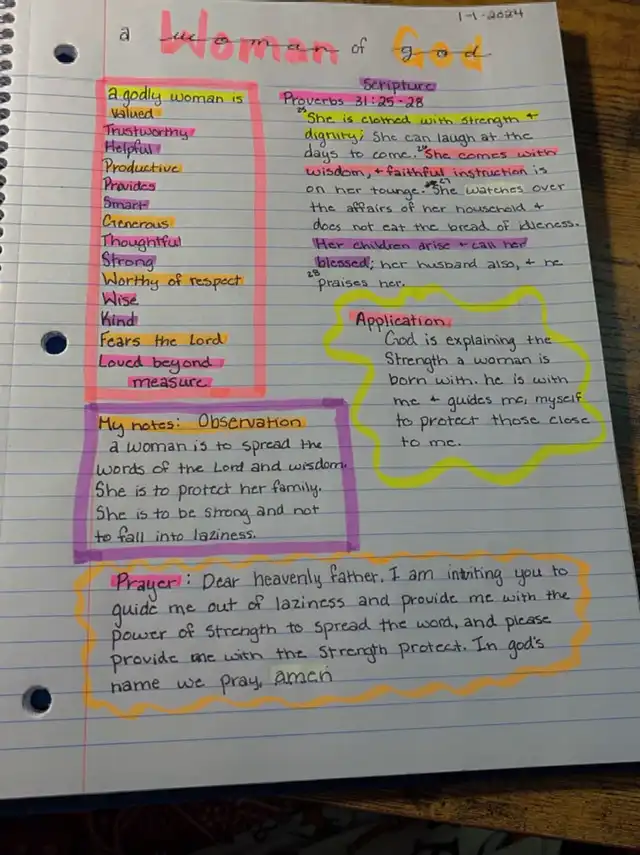 1-1-2024
a Woman of God
a godly woman is
Valued
Trustworthy
Helpful
Productive
Provides
Smart
Generous
Thoughtful
Strong
Worthy of respect
Wise
Kind
Fears the Lord
Loved beyond
measure
Scripture
Proverbs 31:25-28
25 She is clothed with strength +
dignity; She can laugh at the
days to come. 26 She comes with
wisdom, + faithful instruction is
on her tounge. 27 She watches over
the affairs of her household +
does not eat the bread of idleness.
Her children arise + call her
blessed; her husband also, + he
28 praises her.
Application
God is explaining the
Strength a woman is
born with. he is with
me + guides me, myself
to protect those close
to me.
My notes: Observation
a woman is to spread the
words of the Lord and wisdom.
She is to protect her family.
She is to be strong and not
to fall into laziness.
Prayer: Dear heavenly father, I am inviting you to
guide me out of laziness and provide me with the
power of Strength to spread the word, and please
provide me with the Strength protect. In god's
name we pray, amen